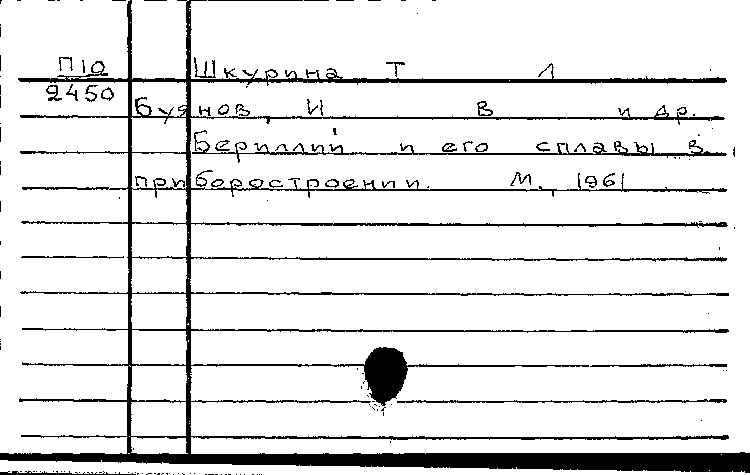 П10 Шкурина Т Л
2450
Буянов, И В и др.
Бериллий и его сплавы в
приборостроении. М., 1961